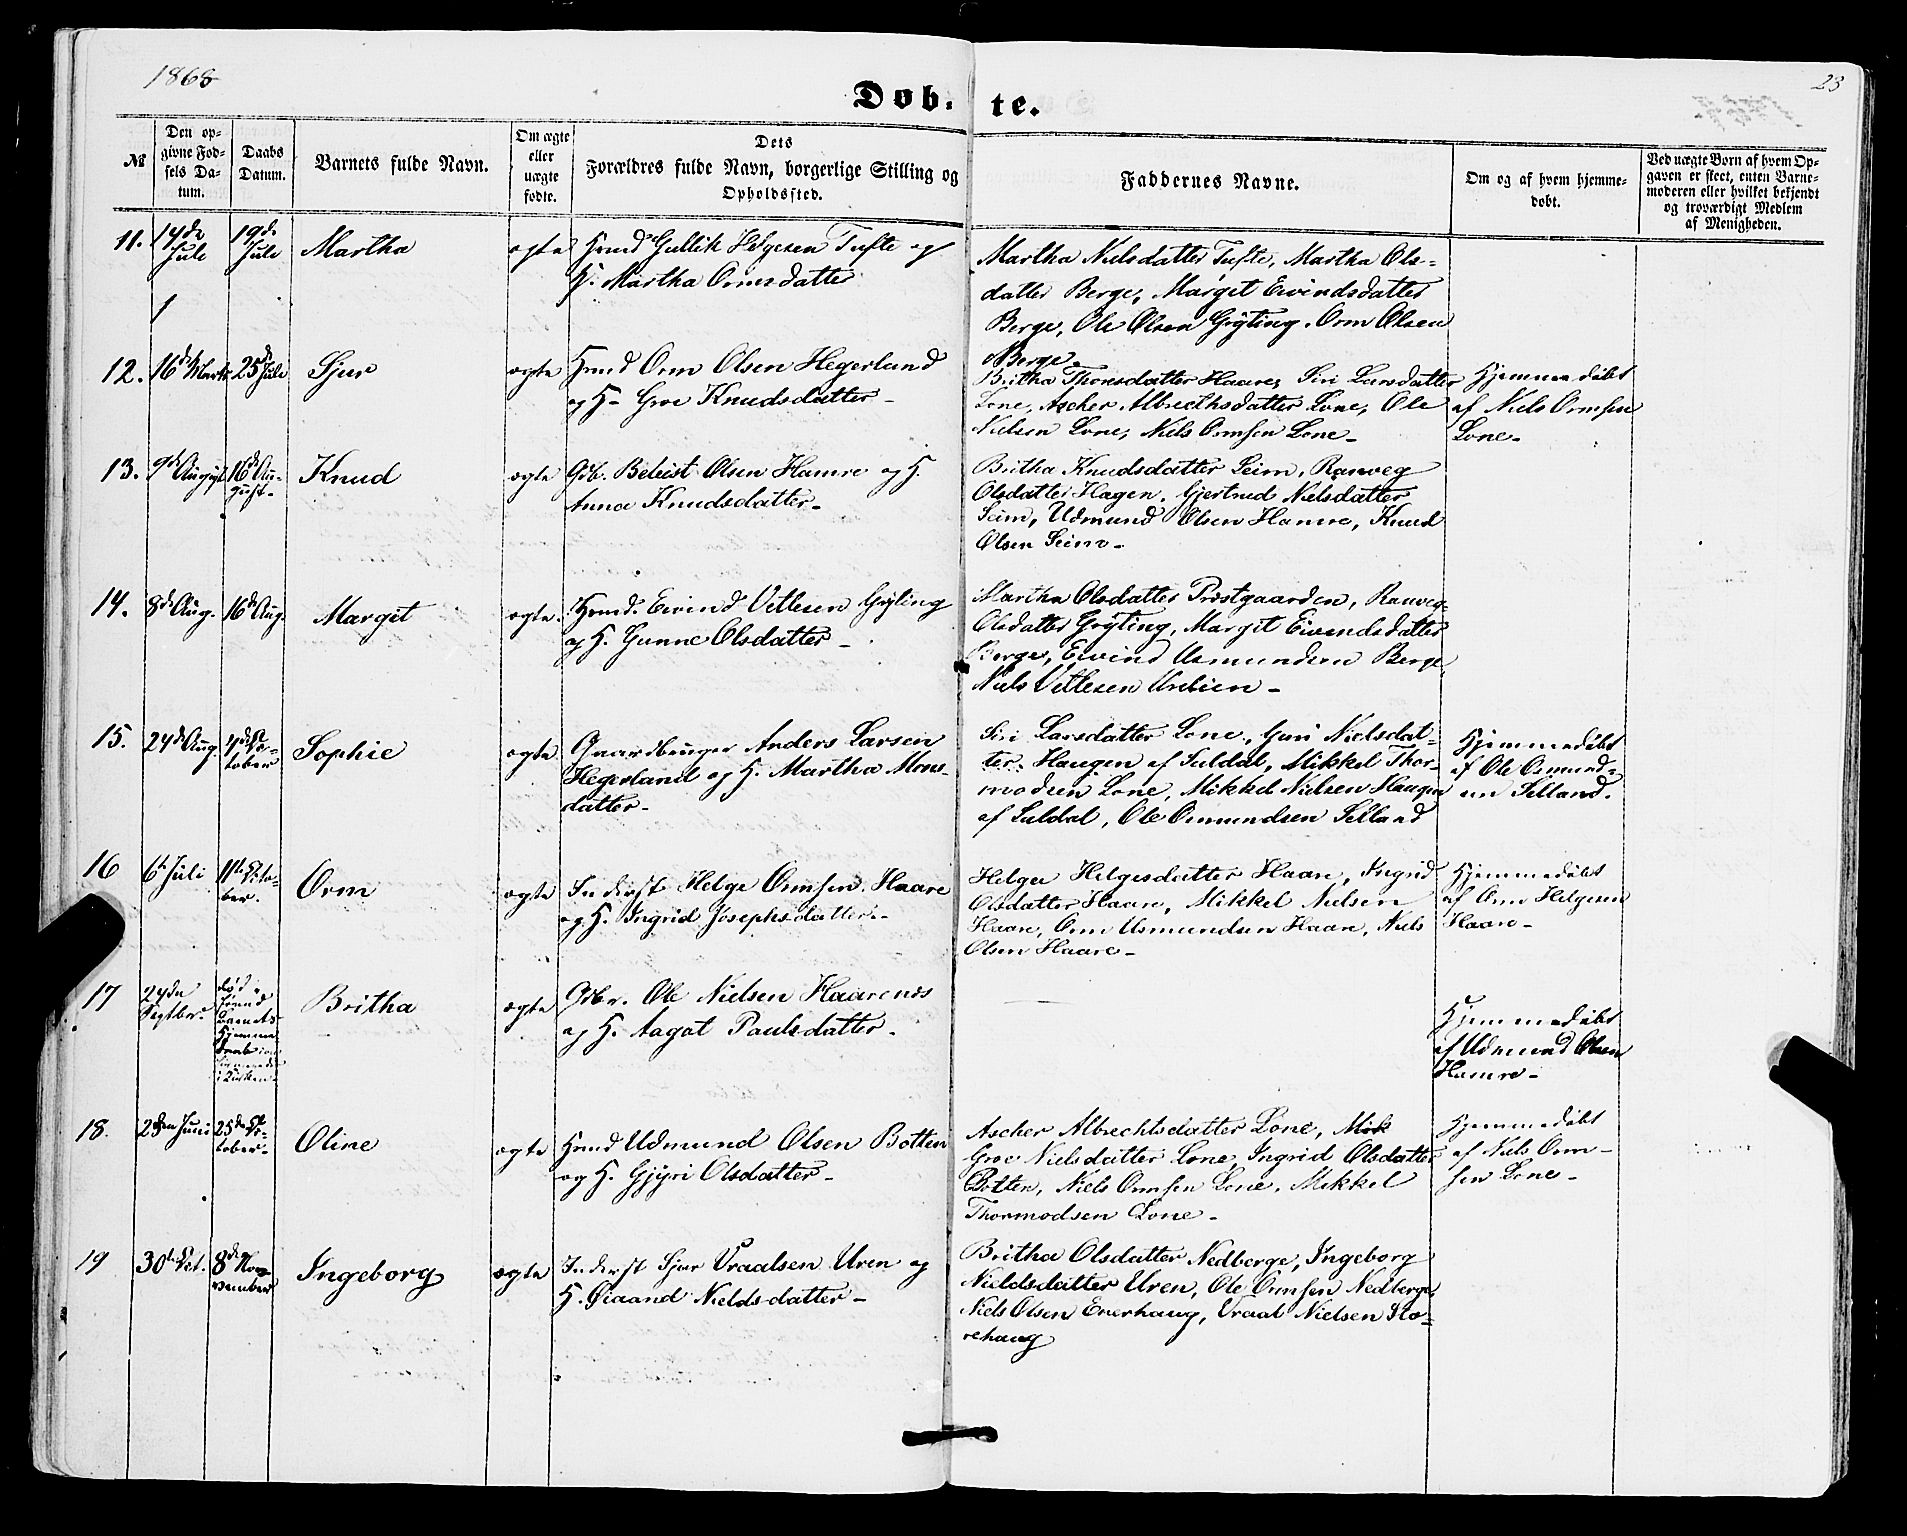 1868
23
Døb. te.
№
Den op-
givne Fød-
sels Da-
tum.
Daabs
Datum.
Barnets fulde Navn.
Om ægte
eller
uægte
fødte.
Dets
Forældres fulde Navn, borgerlige Stilling og
Opholdssted.
Faddernes Navne.
Om og af hvem hjemme-
døbt.
Ved uægte Børn af hvem Op-
gaven er skeet, enten Barne-
moderen eller hvilket bekjendt
og troværdigt Medlem
af Menigheden.
11.
14de
Jule
19de
Jule
Martha
ægte
Hmd Gullik Helgesen Tufte og
H. Martha Ormsdatter
Martha Nielsdatter Tufte, Martha Ols-
datter Berge, Marget Eivindsdatter
Berge, Ole Olsen Grÿting, Orm Olsen
Berge.
12.
16de Marts
25de Jule
Sjur
ægte
Hmd Orm Olsen Hegerland
og H. Groe Knudsdatter -
Britha Thorsdatter Haare, Siri Larsdatter
Lone, Ascher Albrecthsdatter Lone, Ole
Nielsen Lone, Niels Ormsen Lone -
Hjemmedøbt
af Niels Ormsen
Lone -
13.
9de August
16de Au-
gust -
Knud
ægte
Gdb. Beleist Olsen Hamre og H.
Anna Knudsdatter -
Britha Knudsdatter Seim, Ranveg
Olsdatter Hagen, Gjertrud Nielsdatter
Seim, Udmund Olsen Hamre, Knud
Olsen Seim -
14.
8de Aug.
16de Aug.
Margit
ægte
Hmd. Eivind Vetlesen Grÿting
og H. Gunne Olsdatter -
Martha Olsdatter Prestgaarden, Ranveg
Olsdatter Grÿting, Margit Eivendsdatter
Berge, Eivind Asmundsen Berge
Niels Vetlesen
15.
24de Aug.
4de Oc-
tober
Sophie
ægte
Gaardbruger Anders Larsen
Hegerland og H. Martha Mons-
datter -
Siri Larsdatter Lone, Guri Nielsdat-
ter Haugen af Suldal, Mikkel Thor-
modsen Lone, Mikkel Nielsen Haugen
af Suldal, Ole Osmundsen Selland
Hjemmedøbt
af Ole Osmund-
sen Selland.
16
6te Juli
11te Octo-
ber.
Orm
ægte
Inderst Helge Ormsen Haare
og H. Ingrid Josephsdatter -
Helga Helgesdatter Haare, Ingrid
Olsdatter Haare, Mikkel Nielsen
Haare, Orm Asmundsen Haare, Niels
Olsen Haare -
Hjemmedøbt
af Orm Helgesen
Haare -
17
24de
Septbr.
død
førend
Barnets
Hjemme
daab
i Kirken
Britha
ægte
Gdbr. Ole Nielsen Haarenes
og H. Aagot Paulsdatter -
Hjemmedøbt
af Udmund Olsen
Hamre -
18.
Juni
25de Oc-
tober -
Oline
ægte
Hmd Udmund Olsen Botten
og H. Gjÿri Olsdatter -
Ascher Albrechtsdatter Lone, Mik
Groe Nielsdatter Lone, Ingrid Olsdatter
Botten, Niels Ormsen Lone, Mikkel
Thormodsen Lone -
Hjemmedøbt
af Niels Orm-
sen Lone -
19
30te Oct.
8de No-
vember
Ingeborg
ægte
Inderst Sjur Vraalsen Uren og
H. Øiaand Nieldsdatter -
Britha Olsdatter Nedberge, Ingeborg
Nieldsdatter Uren, Ole Ormsen Nedberge,
Niels Olsen Enerhaug, Vraal Nielsen Sto-
rehaug